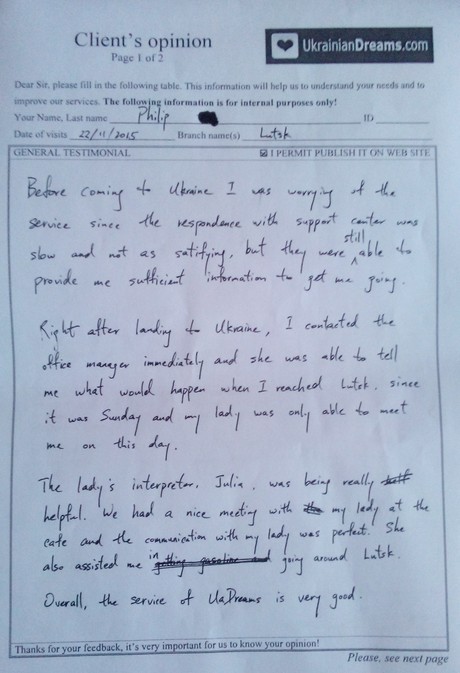 Client's opinion
Page 1 of 2
UkrainianDreams.com
Dear Sir, please fill in the following table. This information will help us to understand your needs and to
improve our services. The following information is for internal purposes only!
Your Name, Last name Philip ID
Date of visits 22/11/2015 Branch name(s) Lutsk
GENERAL TESTIMONIAL I PERMIT PUBLISH IT ON WEB SITE
Before coming to Ukraine I was worrying of the
service since the respondence with support center was
slow and not as satifying, but they were still able to
provide me sufficient information to get me going.
Right after landing to Ukraine, I contacted the
office manager immediately and she was able to tell
me what would happen when I reached Lutsk, since
it was Sunday and my lady was only able to meet
me on this day.
The lady's interpreter, Julia, was being really
helpful. We had a nice meeting with my lady at the
cafe and the communication with my lady was perfect. She
also assisted me in getting gasoline and going around Lutsk.
Overall, the service of UaDreams is very good.
Thanks for your feedback, it's very important for us to know your opinion!
Please, see next page